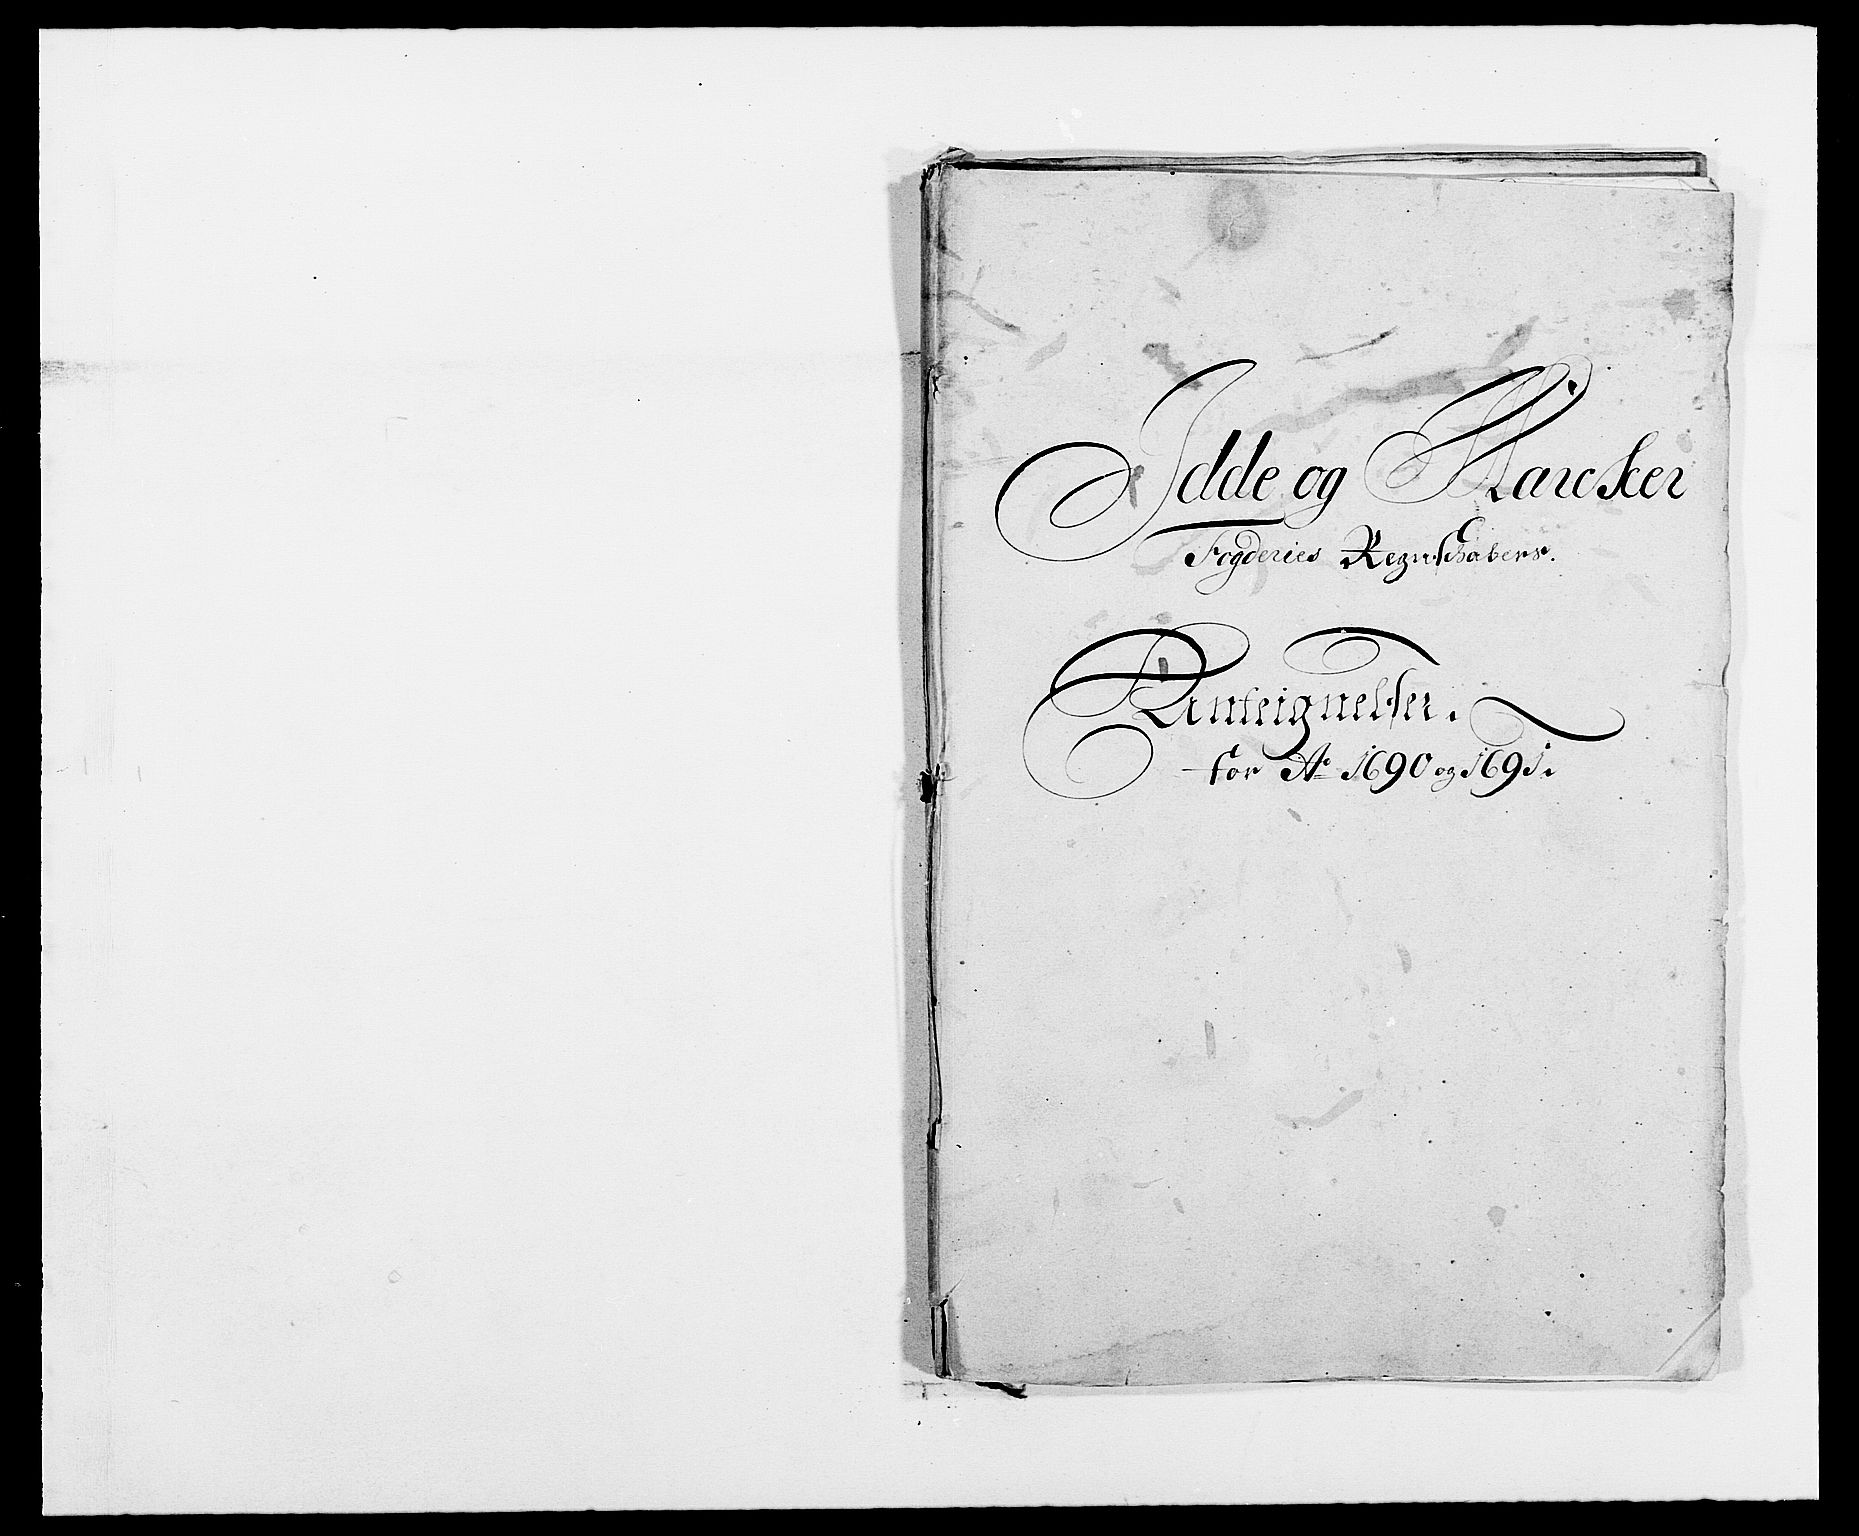 Idde og Marcker
Fogderies Regnschabers.
Anteignelser.
for Ao 1690 og 1691.